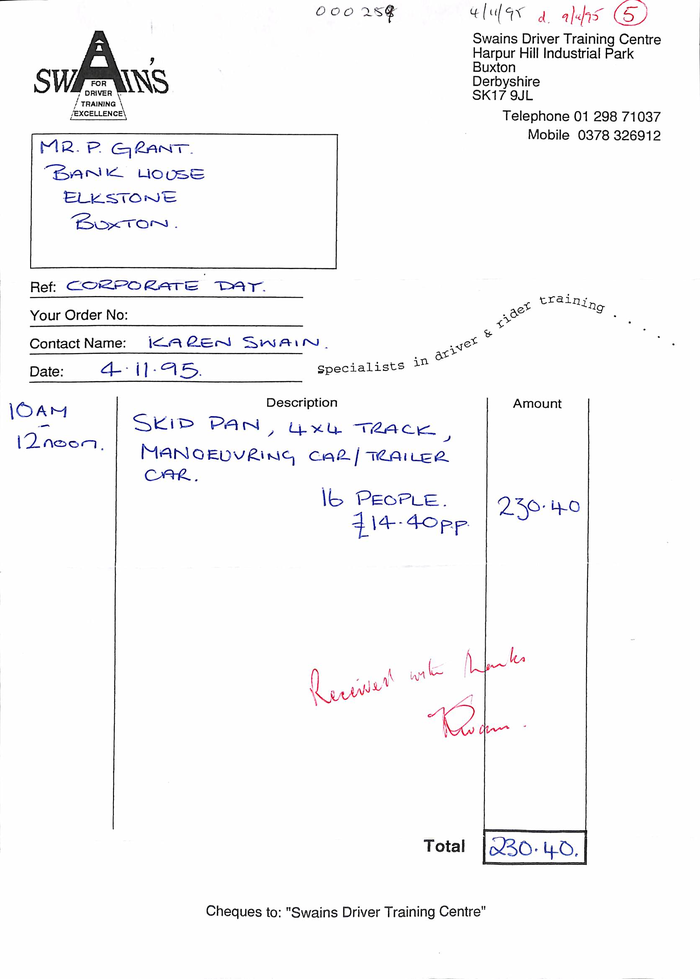 000259
4/11/95 d. 9/11/95 5
SWAIN'S
FOR
DRIVER
TRAINING
EXCELLENCE
Swains Driver Training Centre
Harpur Hill Industrial Park
Buxton
Derbyshire
SK17 9JL
Telephone 01 298 71037
Mobile 0378 326912
MR. P. GRANT.
BANK HOUSE
ELKSTONE
BUXTON.
Ref: CORPORATE DAY.
Your Order No:
Contact Name: KAREN SWAIN.
Date: 4.11.95.
Specialists in driver & rider training . . . . .
Description Amount
10AM
-
12noon.
SKID PAN, 4x4 TRACK,
MANOEUVRING CAR/TRAILER
CAR.
16 PEOPLE. 230.40
£14.40pp.
Received with thanks
KSwain.
Total 230.40.
Cheques to: "Swains Driver Training Centre"